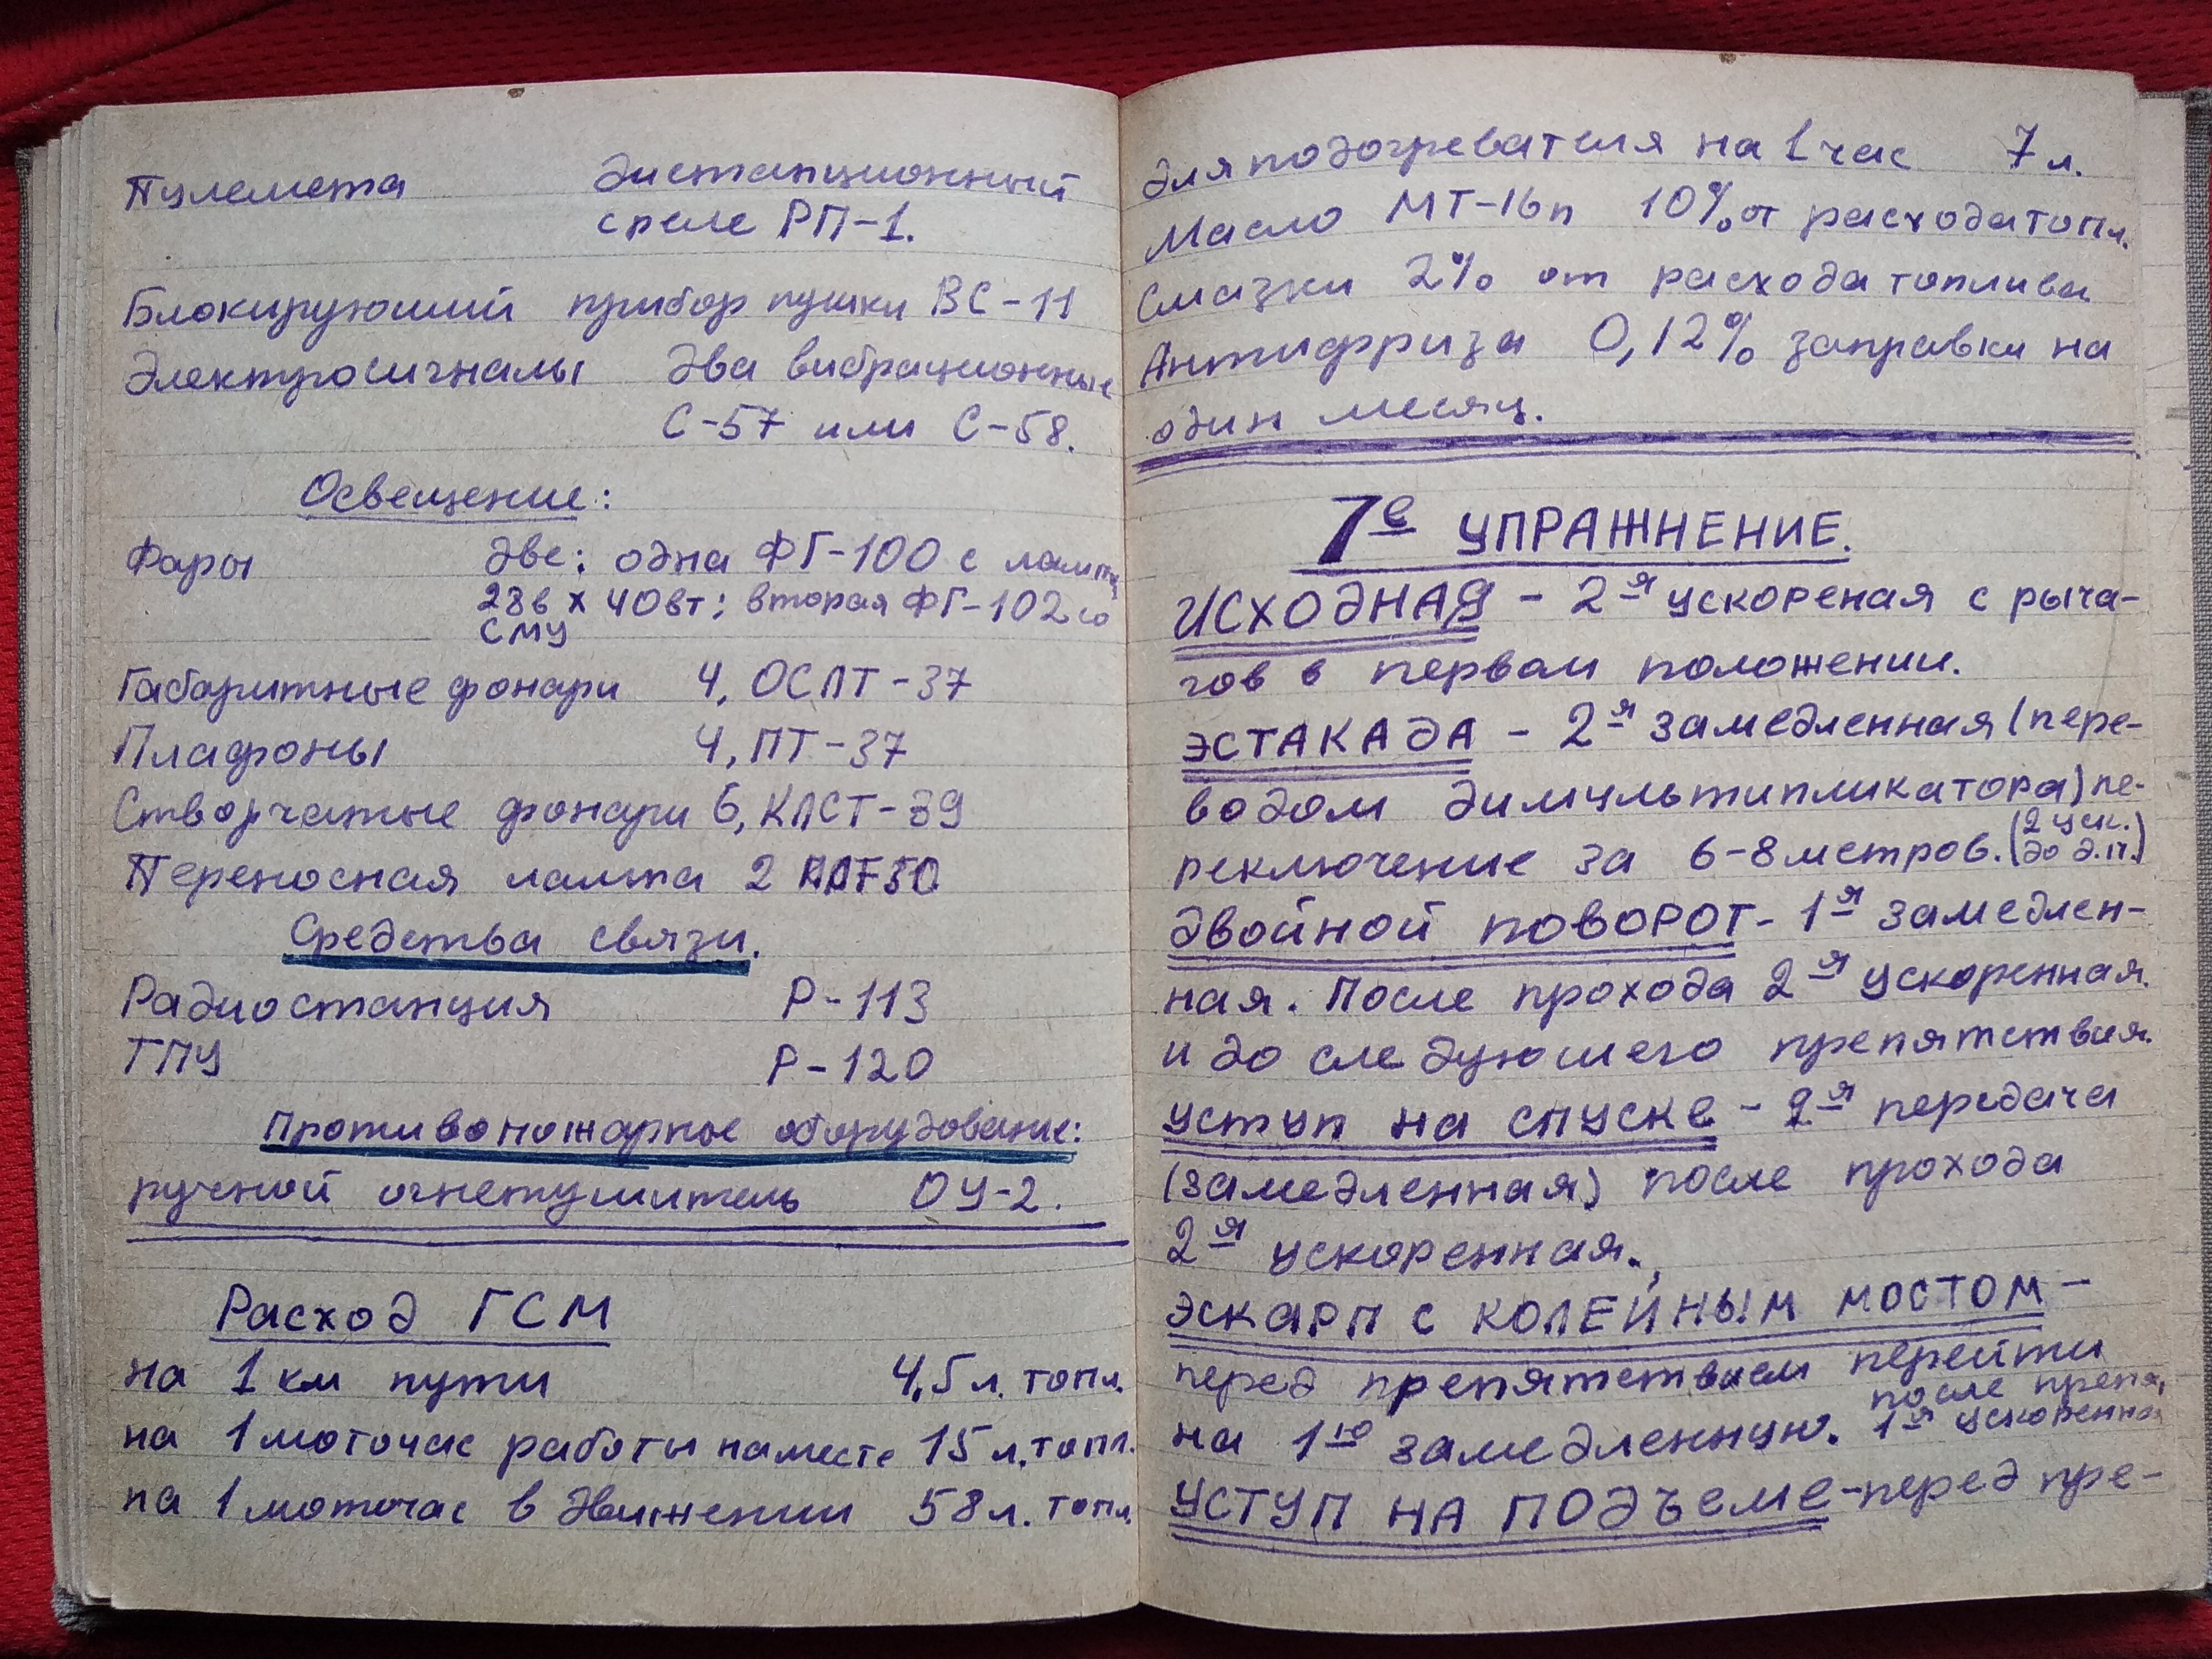 Пулемета дистанционный
с реле РП-1.
Блокируюший прибор пушки ВС-11
Электросигналы два вибрационные
С-57 или С-58.
Освещение:
Фары две: одна ФГ-100 с лампу
28в х 40вт; вторая ФГ-102 со
СМУ
Габаритные фонари 4, ОСЛТ-37
Плафоны 4, ПТ-37
Створчатые фонари 6, КЛСТ-39
Переносная лампа 2
Средства связи.
Радиостанция Р-113
ТПУ Р-120
Противопожарное оборудование:
ручной огнетушитель ОУ-2.
Расход ГСМ
на 1 км пути 4,5 л. топл.
на 1 моточас работы на месте 15 л. топл.
на 1 моточас в движении 58 л. топл.
для подогревателя на 1 час 7 л.
Масло МТ-16п 10% от расхода топл.
Смазки 2% от расхода топлива
Антифриза 0,12% заправки на
один месяц.
7е УПРАЖНЕНИЕ.
ИСХОДНАЯ - 2я ускореная с рыча-
гов в первом положении.
ЭСТАКАДА - 2я замедленная (пере-
водом димультипликатора) пе-
реключение за 6-8 метров. (2 уск.
до д.п.)
ДВОЙНОЙ ПОВОРОТ - 1я замедлен-
ная. После прохода 2я ускоренная.
и до следуюшего препятствия.
УСТУП НА СПУСКЕ - 2я передача
(замедленная) после прохода
2я ускоренная.
ЭСКАРП С КОЛЕЙНЫМ МОСТОМ -
перед препятствием перейти
на 1ю замедленную. после препя,
1я ускоренная
УСТУП НА ПОДЪЕМЕ - перед пре-